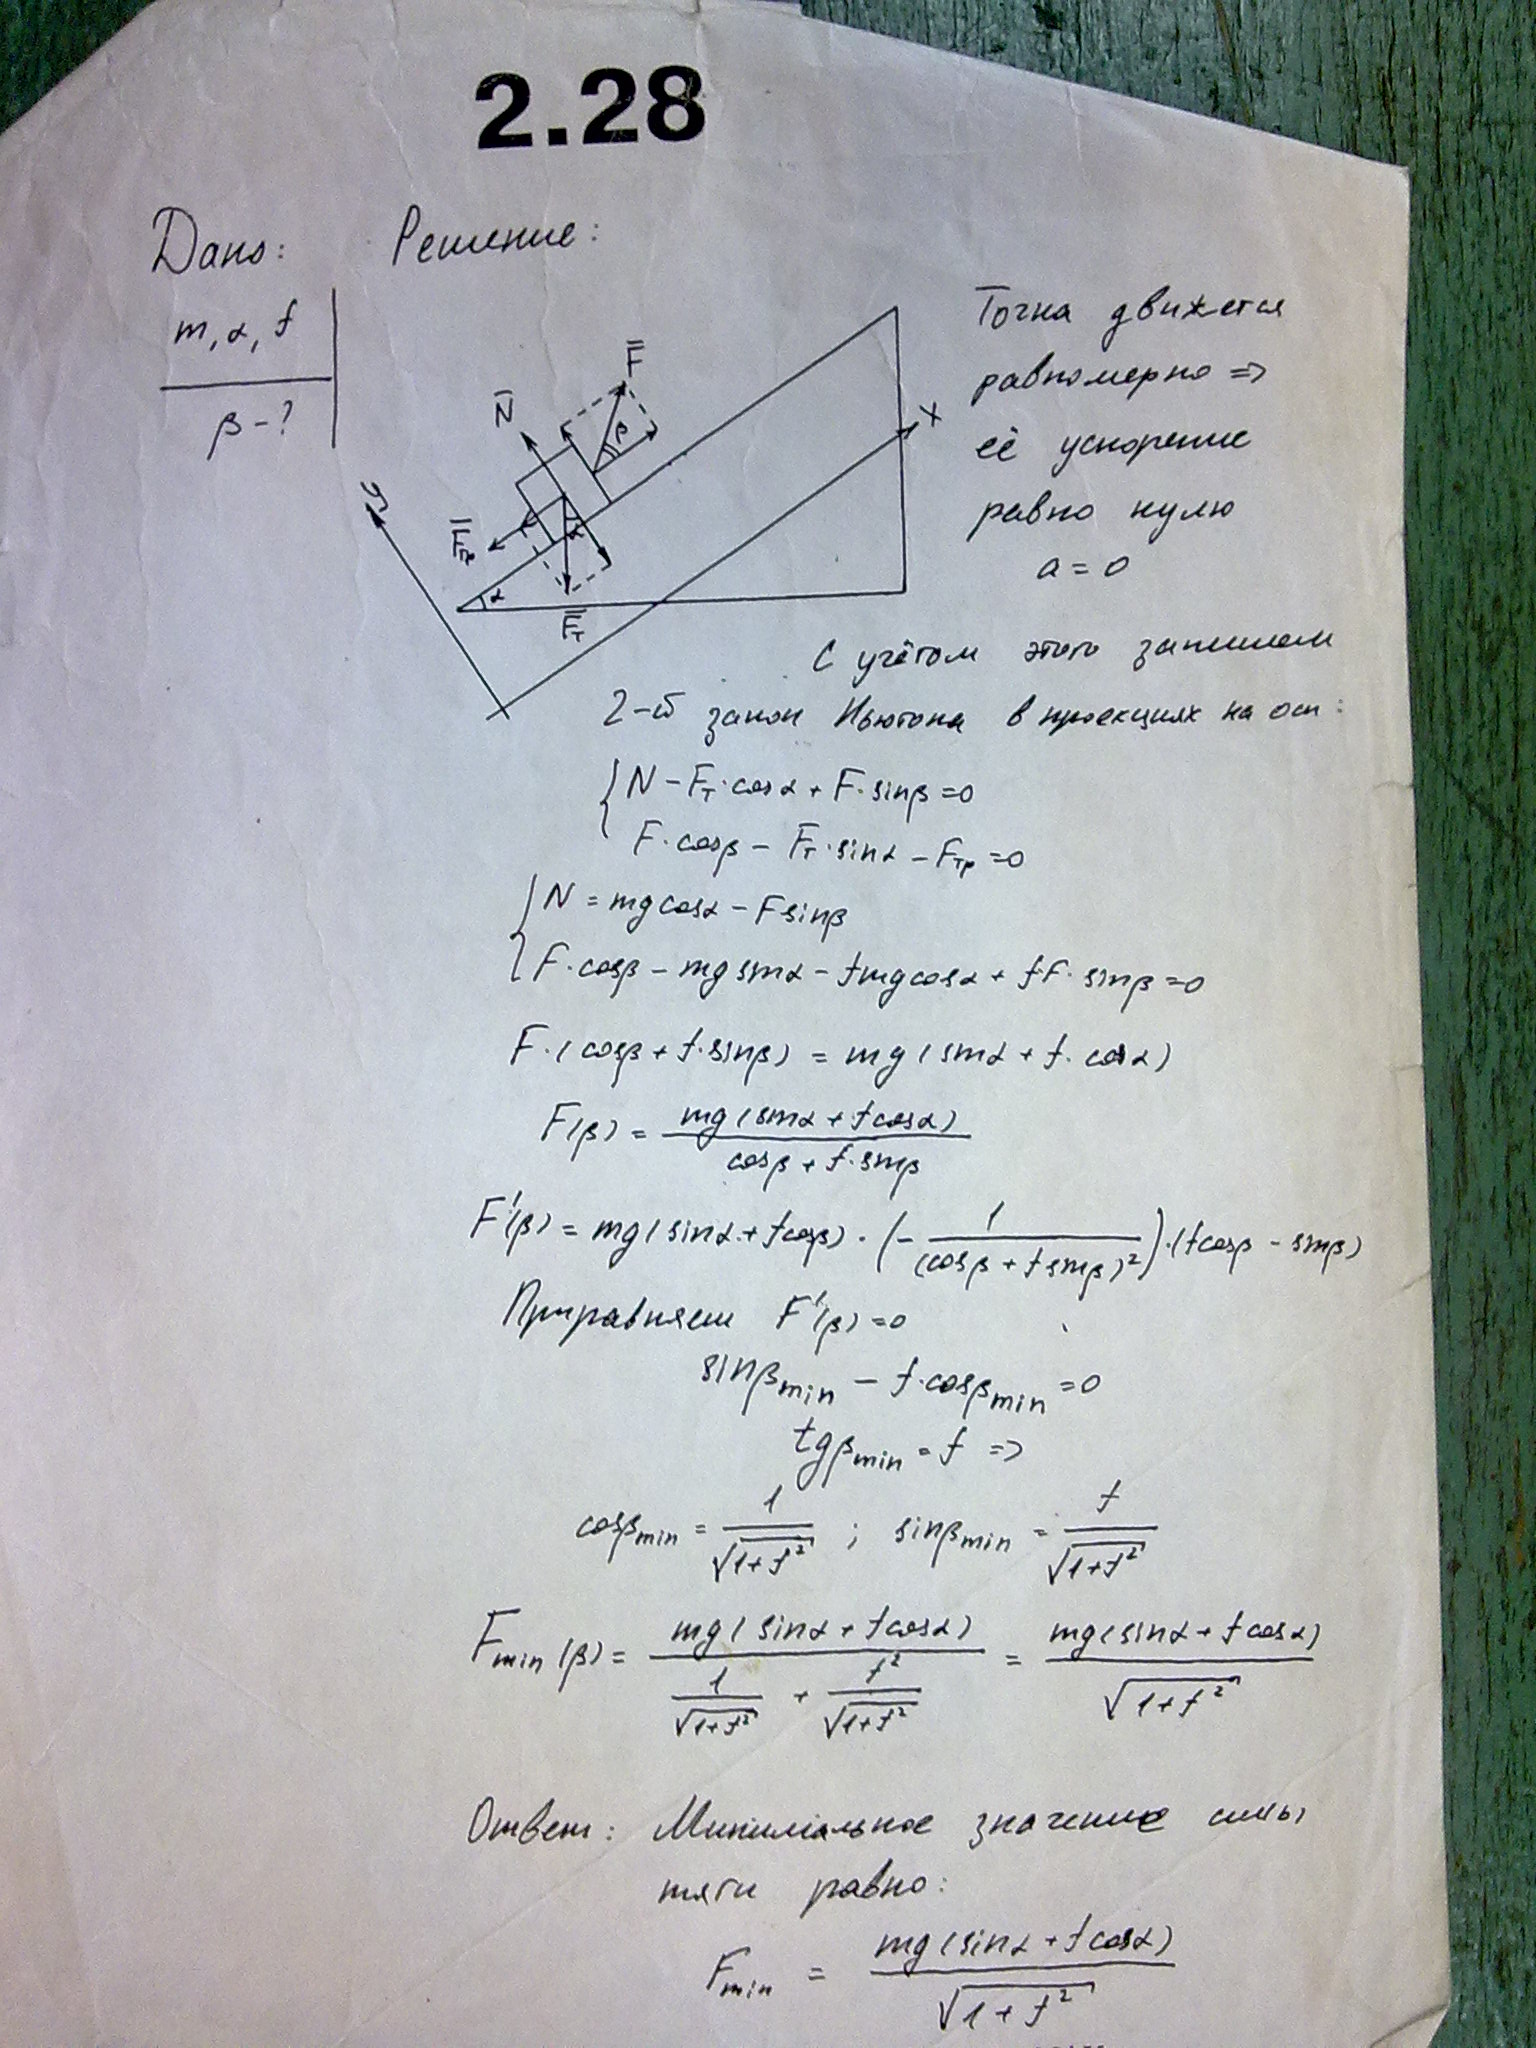 2.28
Дано:
Решение:
m, α, f
β - ?
N̄
F̄
β
X
y
F̄тр
α
α
F̄т
Точка движется
равномерно =>
её ускорение
равно нулю
a = 0
С учётом этого запишем
2-й закон Ньютона в проекциях на оси:
{ N - Fт·cosα + F·sinβ = 0
F·cosβ - Fт·sinα - Fтр = 0
{ N = mgcosα - Fsinβ
F·cosβ - mgsinα - fmgcosα + fF·sinβ = 0
F·(cosβ + f·sinβ) = mg(sinα + f·cosα)
F(β) = mg(sinα + fcosα) / (cosβ + f·sinβ)
F'(β) = mg(sinα + fcosβ)·(- 1/(cosβ + fsinβ)²)·(fcosβ - sinβ)
Приравняем F'(β) = 0
sinβmin - f·cosβmin = 0
tgβmin = f =>
cosβmin = 1/√(1+f²) ; sinβmin = f/√(1+f²)
Fmin(β) = mg(sinα + fcosα) / (1/√(1+f²) + f²/√(1+f²)) = mg(sinα + fcosα) / √(1+f²)
Ответ: Минимальное значение силы
тяги равно:
Fmin = mg(sinα + fcosα) / √(1+f²)